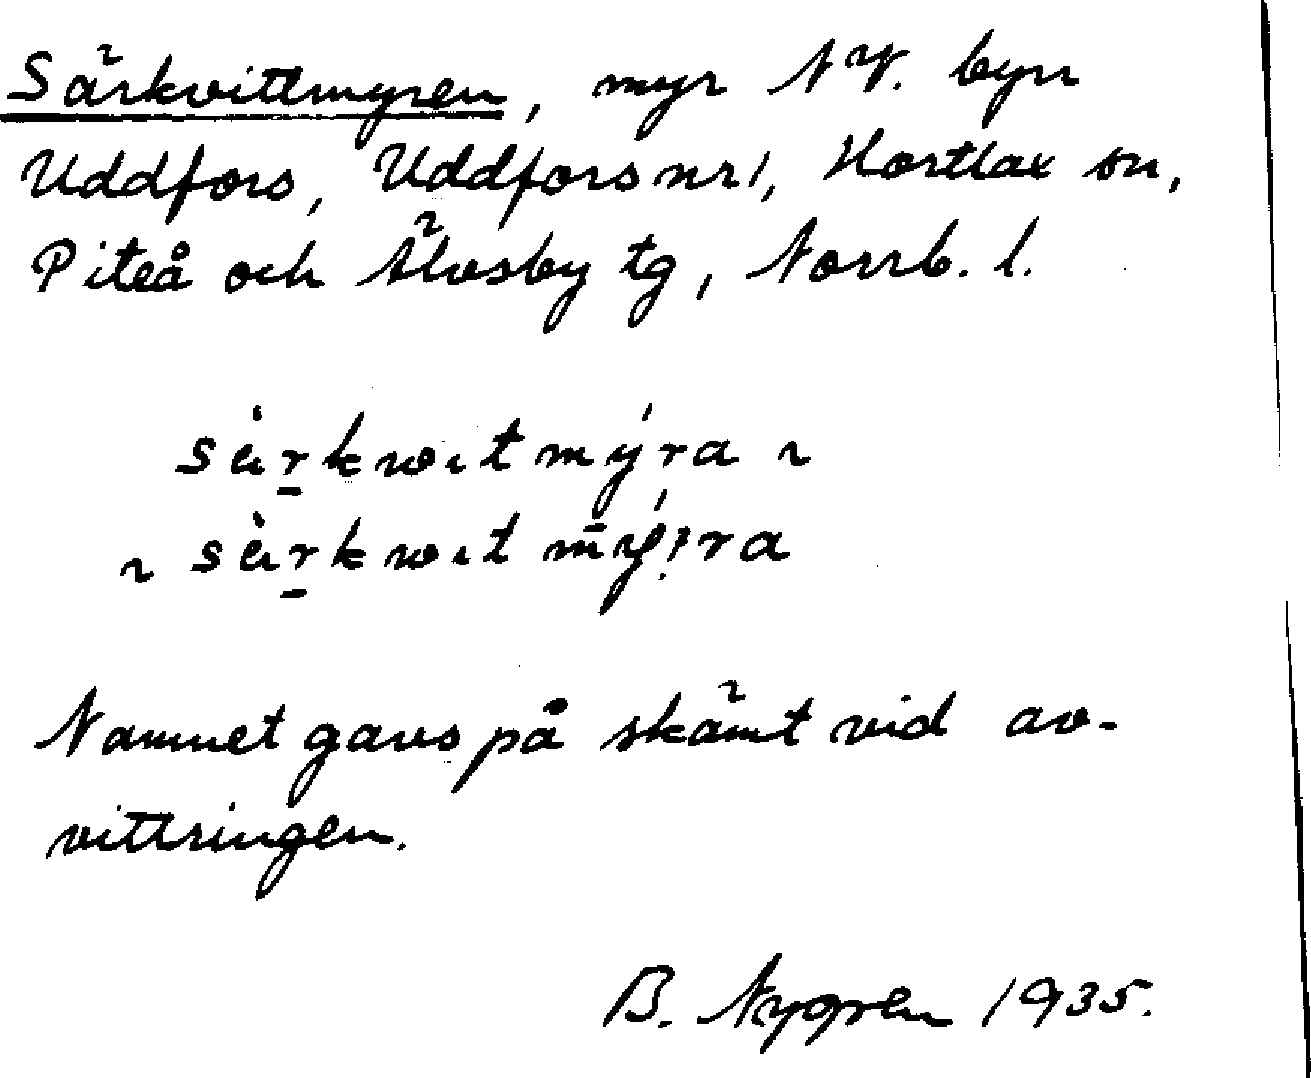 Särkvittmyren, myr NV. byn
Uddfors, Uddfors nr 1, Hortlax sn,
Piteå och Älvsby tg, Norrb. l.
sàrkwıtmýra ~
~ sàrkwıt mýra
Namnet gavs på skämt vid av-
vittringen.
B. Nygren 1935.